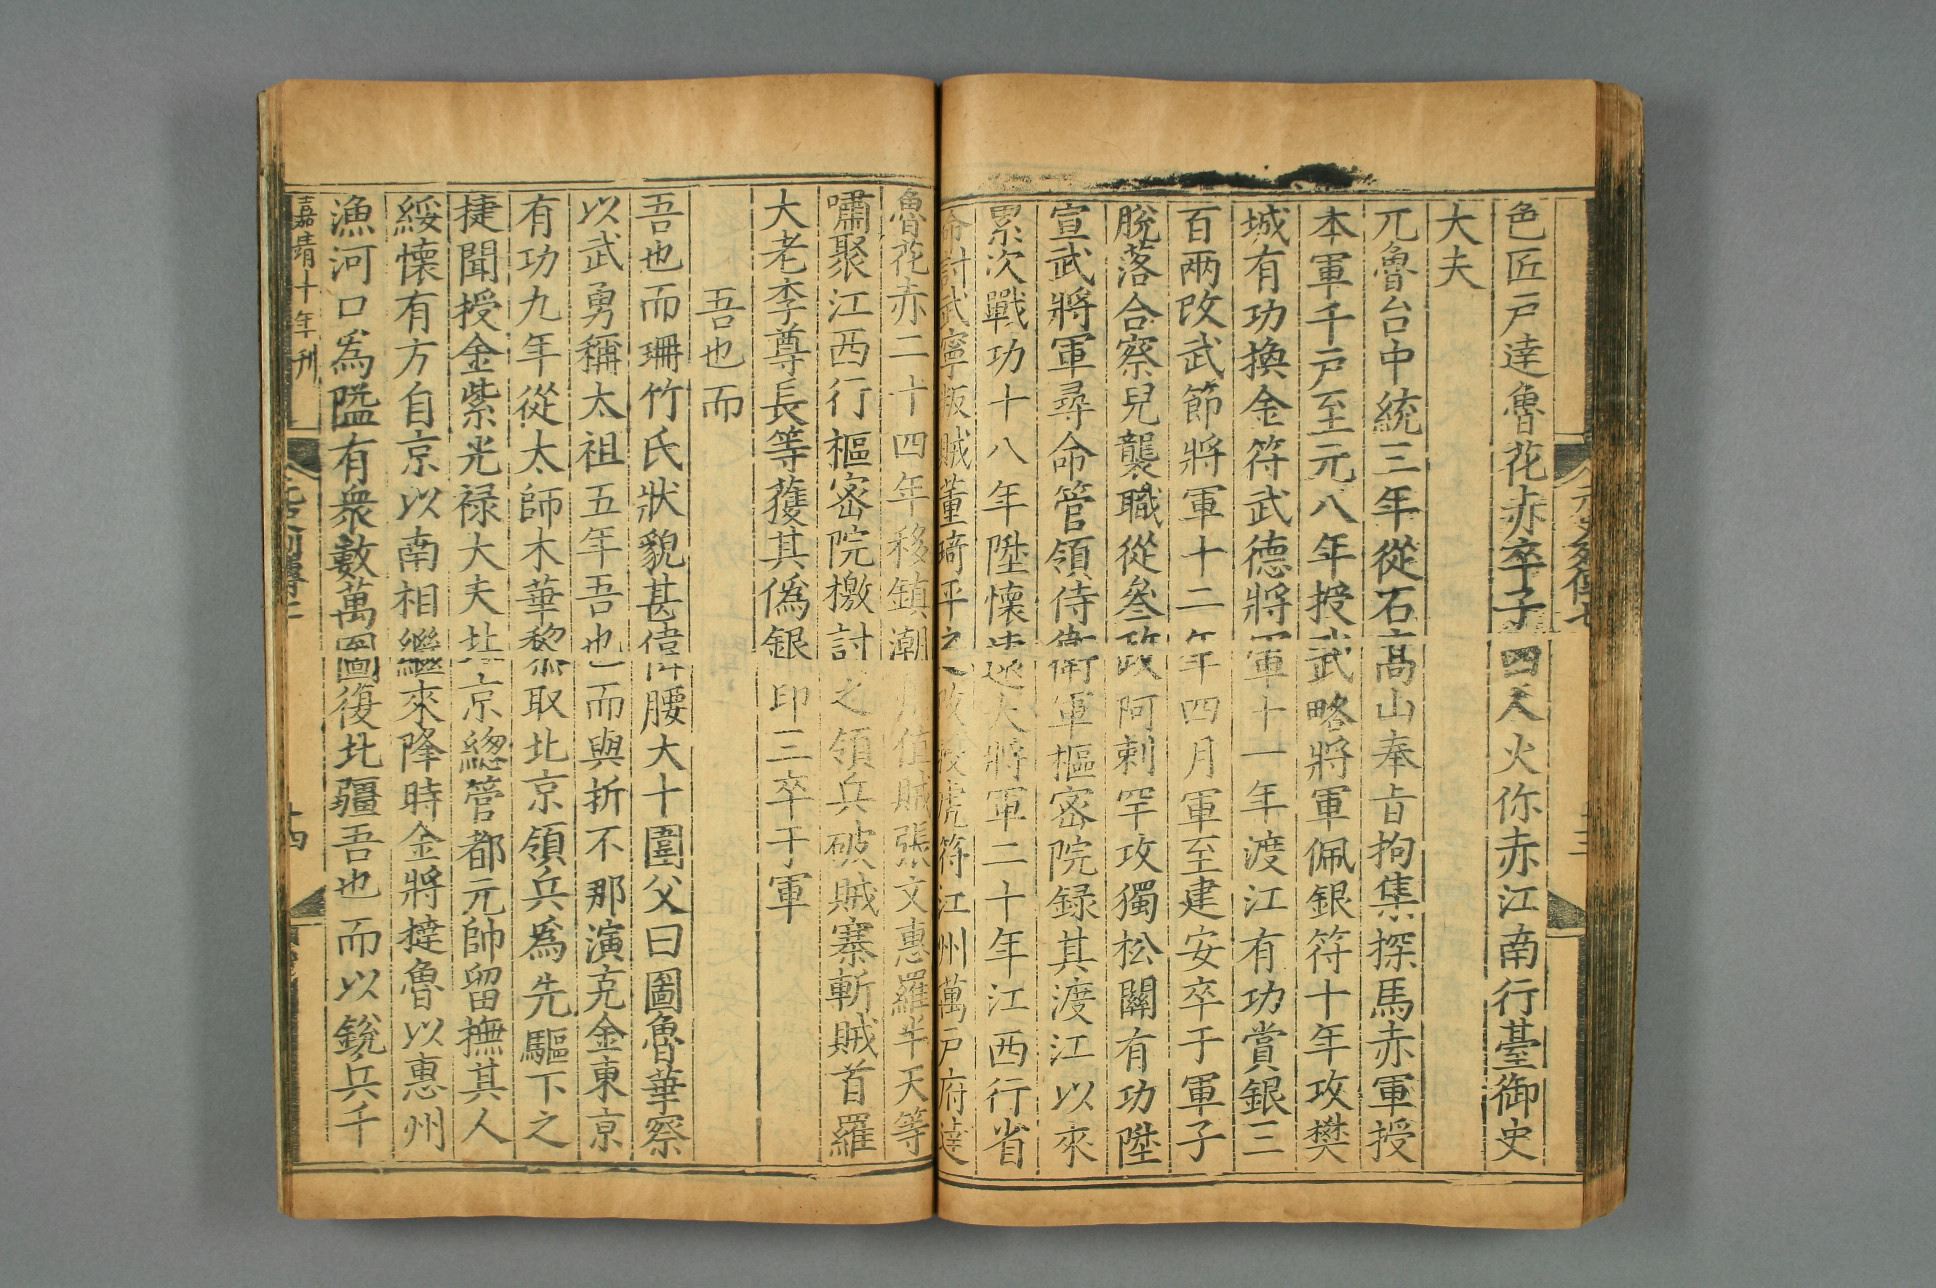 色匠戸達魯花赤卒子四天火你赤江南行臺御史
大夫
兀魯台中統三年從石高山奉旨拘集探馬赤軍授
本軍千戸至元八年授武略將軍佩銀符十年攻樊
城有功換金符武德將軍十一年渡江有功賞銀三
百兩改武節將軍十二年四月軍至建安卒于軍子
脫落合察兒襲職從叅政阿剌罕攻獨松關有功陞
宣武將軍尋命管領侍衛軍樞密院録其渡江以來
累次戰功十八年陞懷遠大將軍二十年江西行省
命討武寧叛賊董琦平之改授虎符江州萬戸府達
魯花赤二十四年移鎮潮州值賊張文惠羅半天等
嘯聚江西行樞密院檄討之領兵破賊寨斬賊首羅
大老李尊長等獲其僞銀印三卒于軍
吾也而
吾也而珊竹氏狀貌甚偉腰大十圍父曰圖魯華察
以武勇稱太祖五年吾也而與折不那演克金東京
有功九年從太師木華黎取北京領兵爲先驅下之
捷聞授金紫光禄大夫北京總管都元帥留撫其人
綏懷有方自京以南相繼來降時金將撻魯以惠州
漁河口爲隘有衆數萬圖復北疆吾也而以銳兵千
嘉靖十年刊
十四